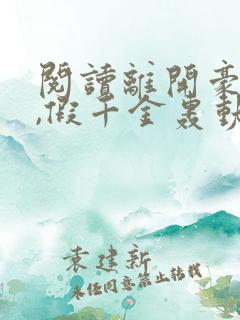 閱讀離開豪
,假千金轟動
袁建新
未经同意禁止转载